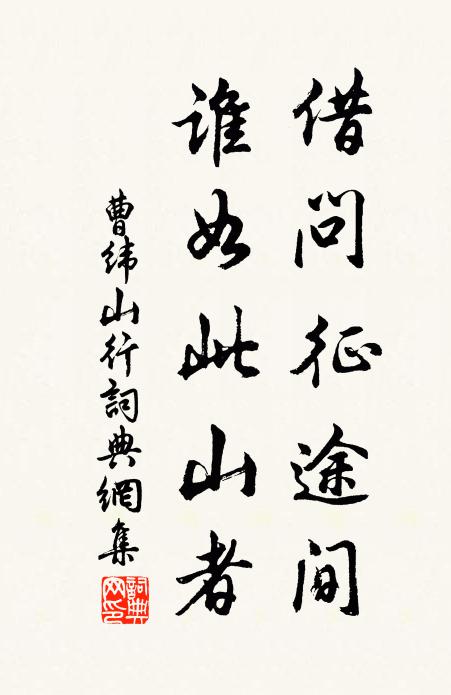 借问征途间
谁如此山者
曹纬山行詞典網集
詞典网印